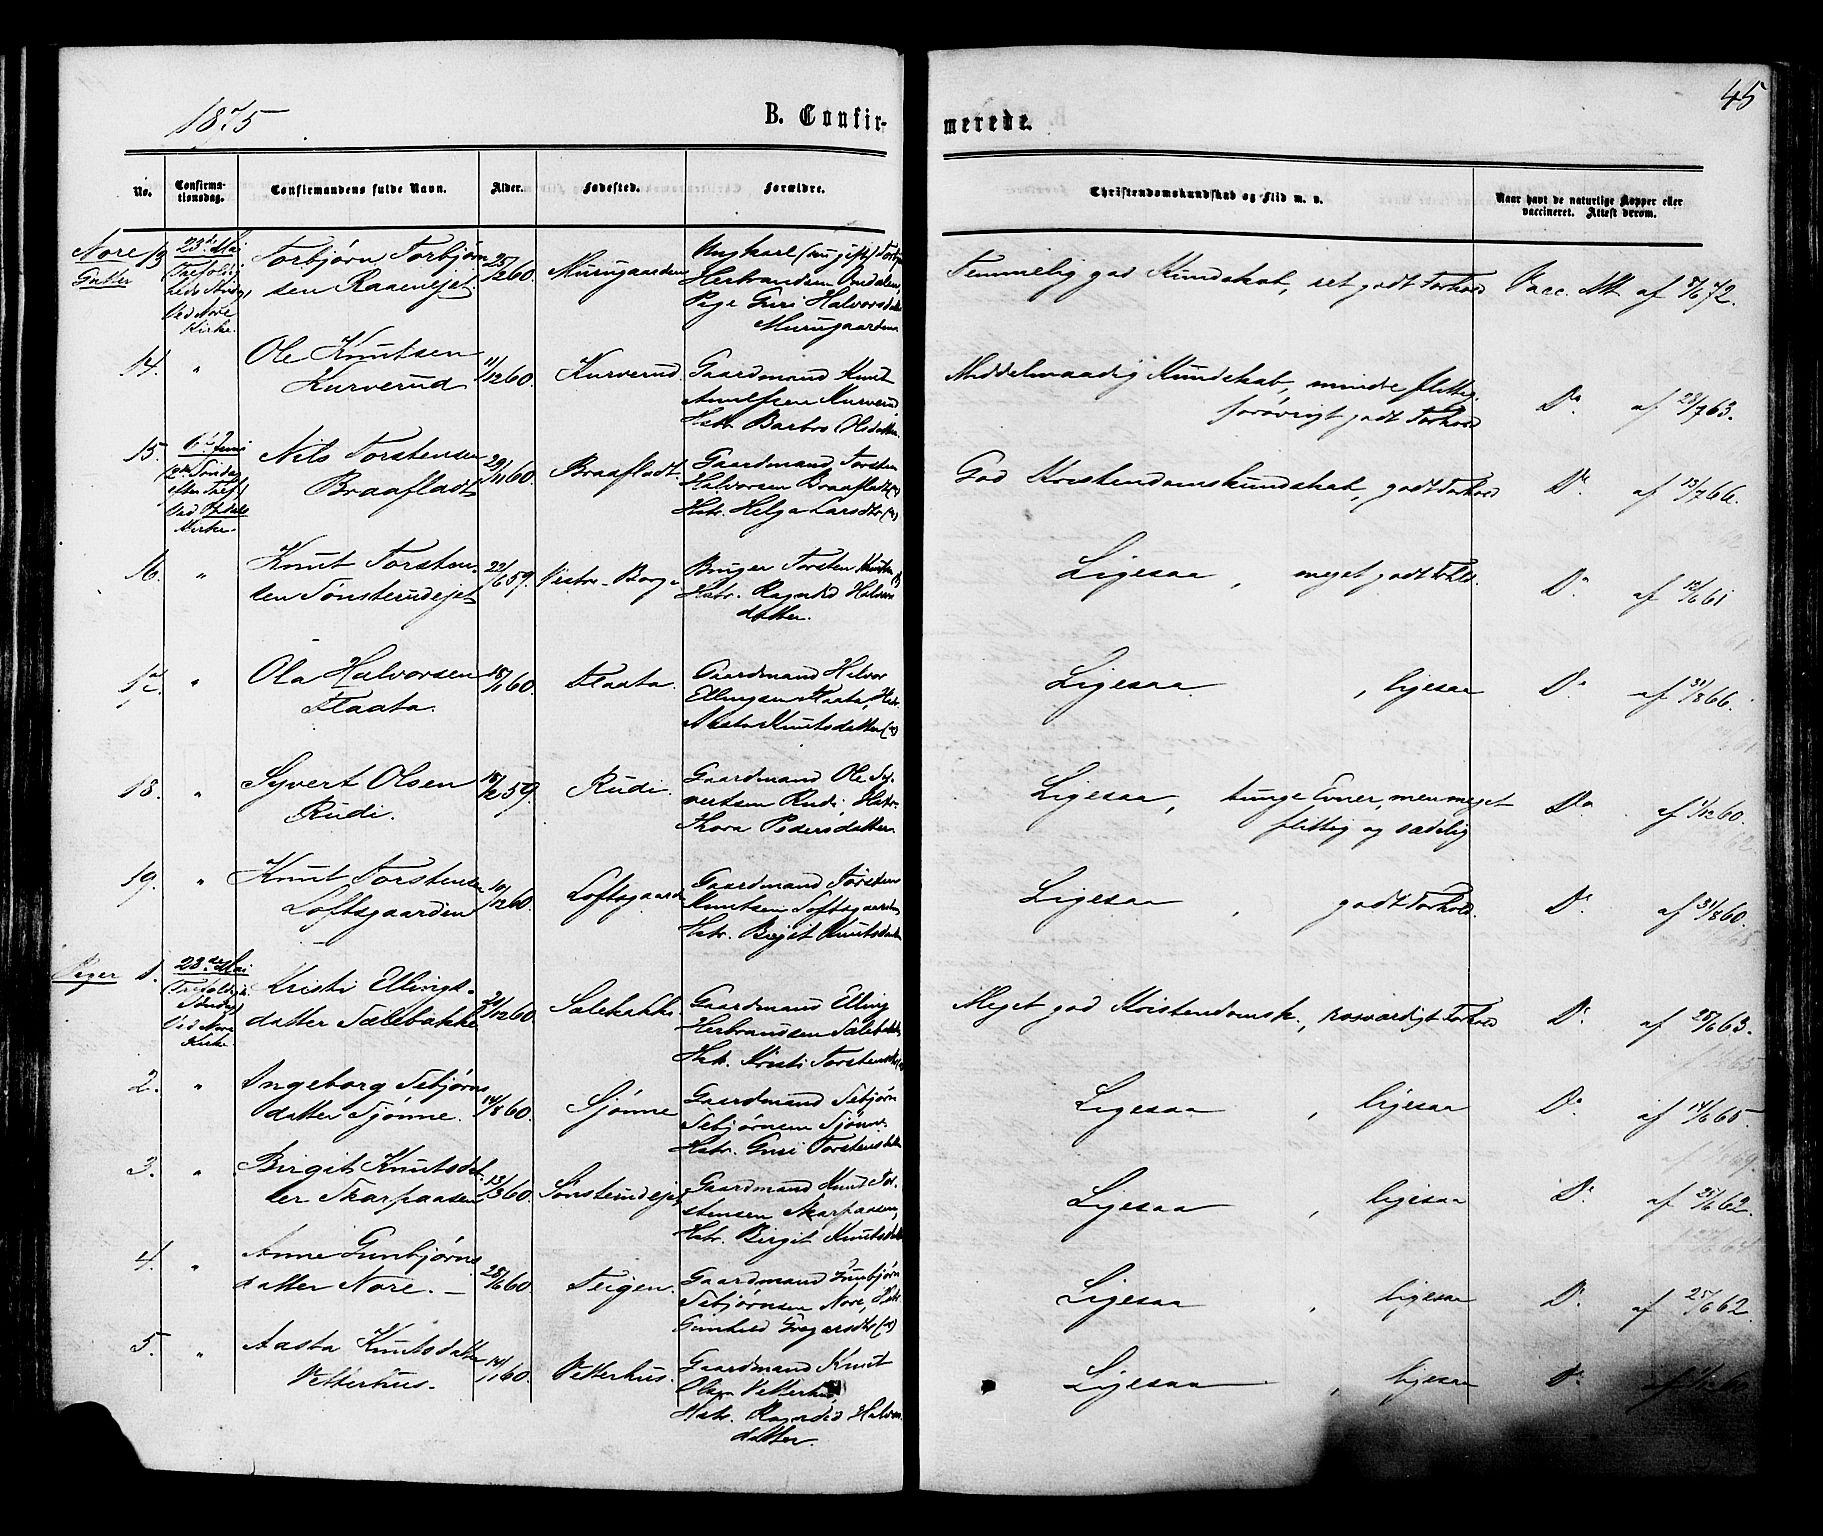 45
1875
B. Confir-
merede.
No.
Confirma-
tionsdag.
Confirmandens fulde Navn.
Alder.
Fødested.
Forældre.
Christendomskundskab og Flid m. v.
Naar havt de naturlige Kopper eller
vaccineret. Attest derom.
Nore
Gutter
13
23de Mai
Ved Nore
Kirke.
Torbjørn Torbjørn
sen Raaenejet.
25/12 60.
Murugaarden
Ungkarl (nu gift) Torbjørn
Herbrandsen
Pige Guri Halvorsdatter
Murugaarden
Temmelig god Kundskab, ret godt Forhold
Vacc. Att. af 8/6 72.
14.
"
Ole Knutsen
Kurverud
11/12 60.
Kurverud.
Gaardmand Knut
Kurverud,
Hstr. Barbro Olsdatter
Middelmaadig Kundskab, mindre flittig,
forøvrigt godt Forhold
Do. af 28/7 63.
15.
6te Juni
(2den Søndag
efter Tref.)
Ved Opdals
Kirke.
Nils Torstensen
Braafladt
29/11 60.
Braafladt.
Gaardmand Torsten
Halvorsen Braafladt
Hstr. Helga Larsdtr.
God Kristendomskundskab, godt Forhold
Do. af 13/7 66.
16.
"
Knut Torsten-
sen Sønsterudejet
22/6 59.
Vestre-Borge
Bruger Torsten Knutsen
Hstr. Ragnhild Halvors
datter.
Ligesaa, meget godt Forhld.
Do. af 12/6 61
17.
"
Ola Halvorsen
Flaata.
18/1 60.
Flaata.
Gaardmand Halvor
Ellingsen Flaata, Hstr.
Aasta Knutsdatter
Ligesaa, ligesaa
Do. af 31/8 66.
18.
"
Syvert Olsen
Rudi.
18/12 59.
Rudi.
Gaardmand Ole Sy-
vertsen Rudi, Hstr.
Thora Pedersdatter.
Ligesaa, tunge Evner, men meget
flittig og sædelig
Do. af 1/12 60.
19.
"
Knut Torstensen
Loftsgaarden
10/12 60.
Loftsgaarden
Gaardmand Torsten
Knutsen Loftsgaarden
Hstr. Birgit Knutsdatter
Ligesaa, godt Forhold.
Do. af 31/8 60.
Piger
1.
23de Mai
(Trefoldigh.
Søndag)
Ved Nore
Kirke
Kristi Ellings-
datter Sælebakke
31/12 60.
Sælebakke.
Gaardmand Elling
Herbrandsen Sælebakke
Hstr. Kristi Torstensdtr.
Meget god Kristendomsk., rosværdigt Forhold
Do. af 28/6 63.
2.
"
Ingeborg Tebjørns
datter Sjønne.
14/8 60.
Sjønne
Gaardmand Tebjørn
Tebjørnsen Sjønne
Hstr. Guri Torstensdatter
Ligesaa, ligesaa
Do. af 14/6 65.
3.
"
Birgit Knutsdat-
ter Skarpaasen
13/3 60.
Sønsterudejet
Gaardmand Knud Tor-
stensen Skarpaasen,
Hstr. Birgit Knutsdatter
Ligesaa, ligesaa
Do. af 25/6 62.
4.
"
Anne Gunbjørns
datter Nore.
28/6 60.
Teigen.
Gaardmand Gunbjørn
Tebjørnsen Nore, Hstr.
Gunhild
Ligesaa, ligesaa
Do. af 25/6 62.
5.
"
Aasta Knutsdatter
Vetterhus.
14/1 60.
Vetterhus.
Gaardmand Knut
Olsen Vetterhus,
Hstr. Ragnhild Halvors
datter.
Ligesaa, ligesaa
Do. af